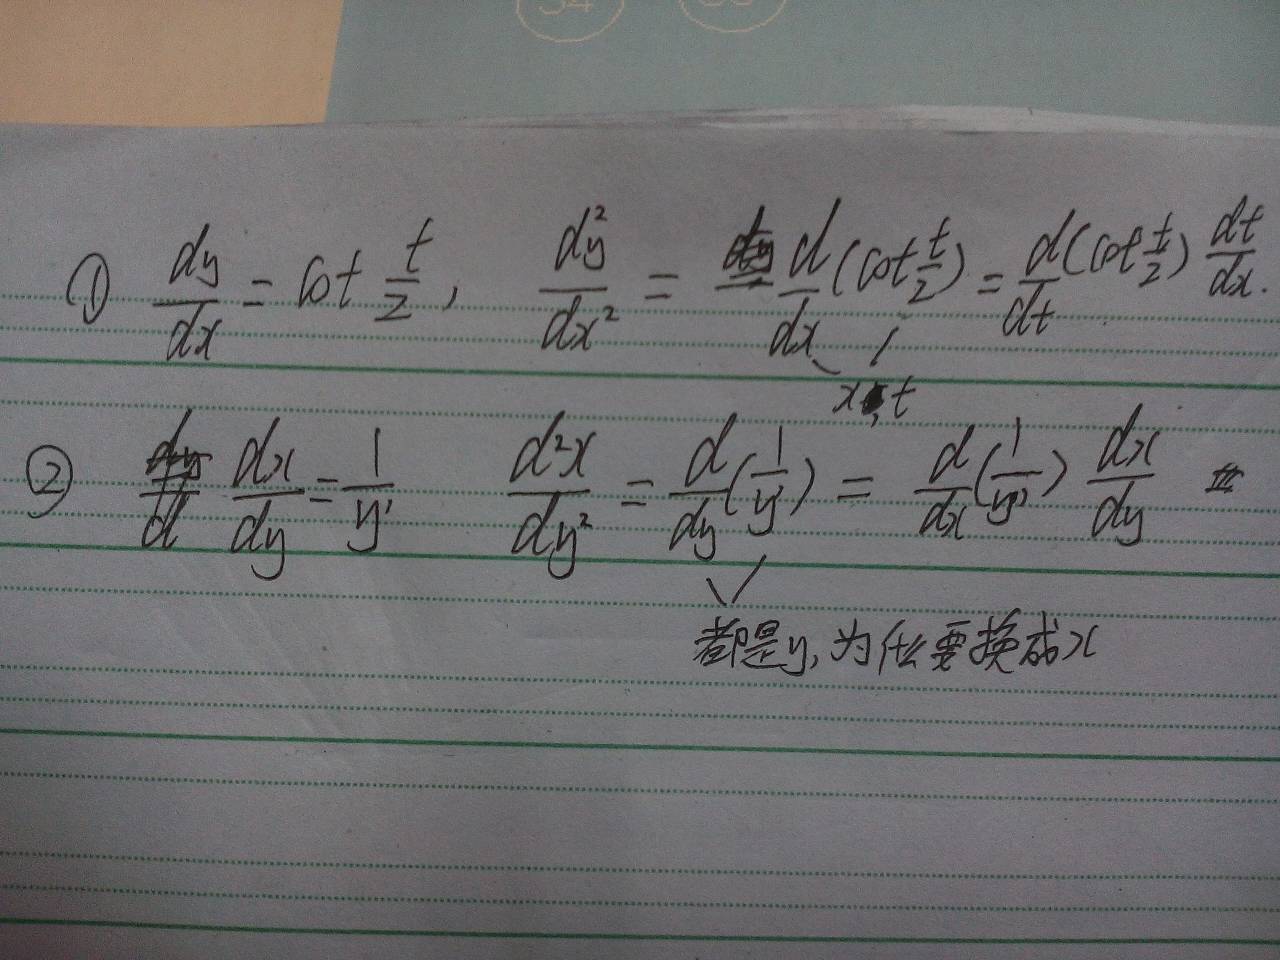 34
① dy/dx = cot t/2, dy²/dx² = d/dx (cot t/2) = d/dt (cot t/2) dt/dx.
x, t
② dx/dy = 1/y' d²x/dy² = d/dy (1/y') = d/dx (1/y') dx/dy
都是y, 为什么要换成x